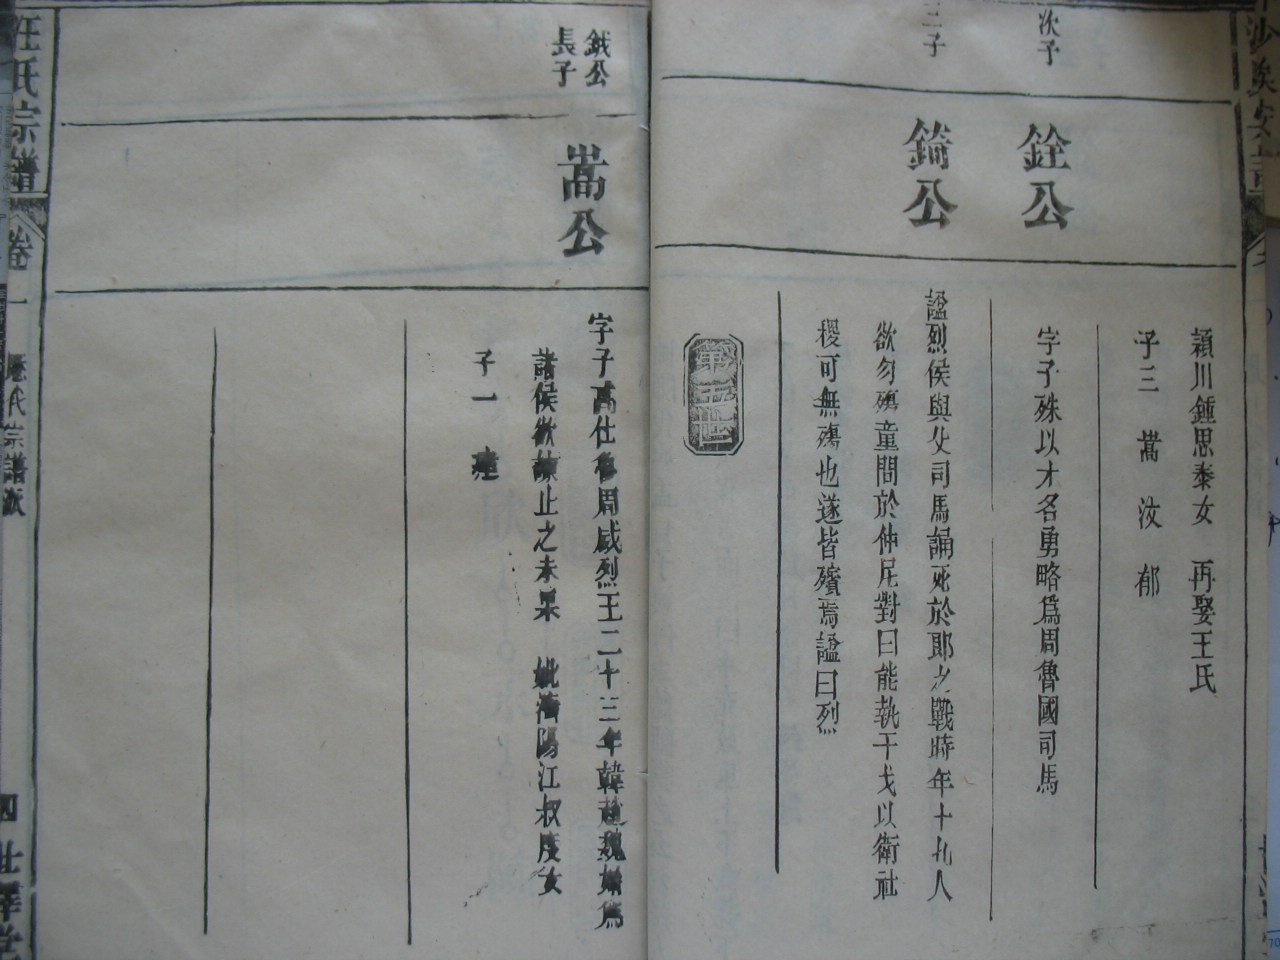 潁川鍾思泰女 再娶王氏
子三 嵩 汝 郁
次子
銓公
字子殊以才名勇略爲周魯國司馬
三子
錡公
謚烈侯與父司馬誦死於郎之戰時年十九人
欲勿殤童問於仲尼對曰能執干戈以衛社
稷可無殤也遂皆殯焉謚曰烈
鉞公
長子
嵩公
字子高仕周威烈王二十三年韓趙魏爲
諸侯欲諫止之未果 娥衡陽江叔度女
子一
汪氏宗譜 卷一 歷代宗譜派